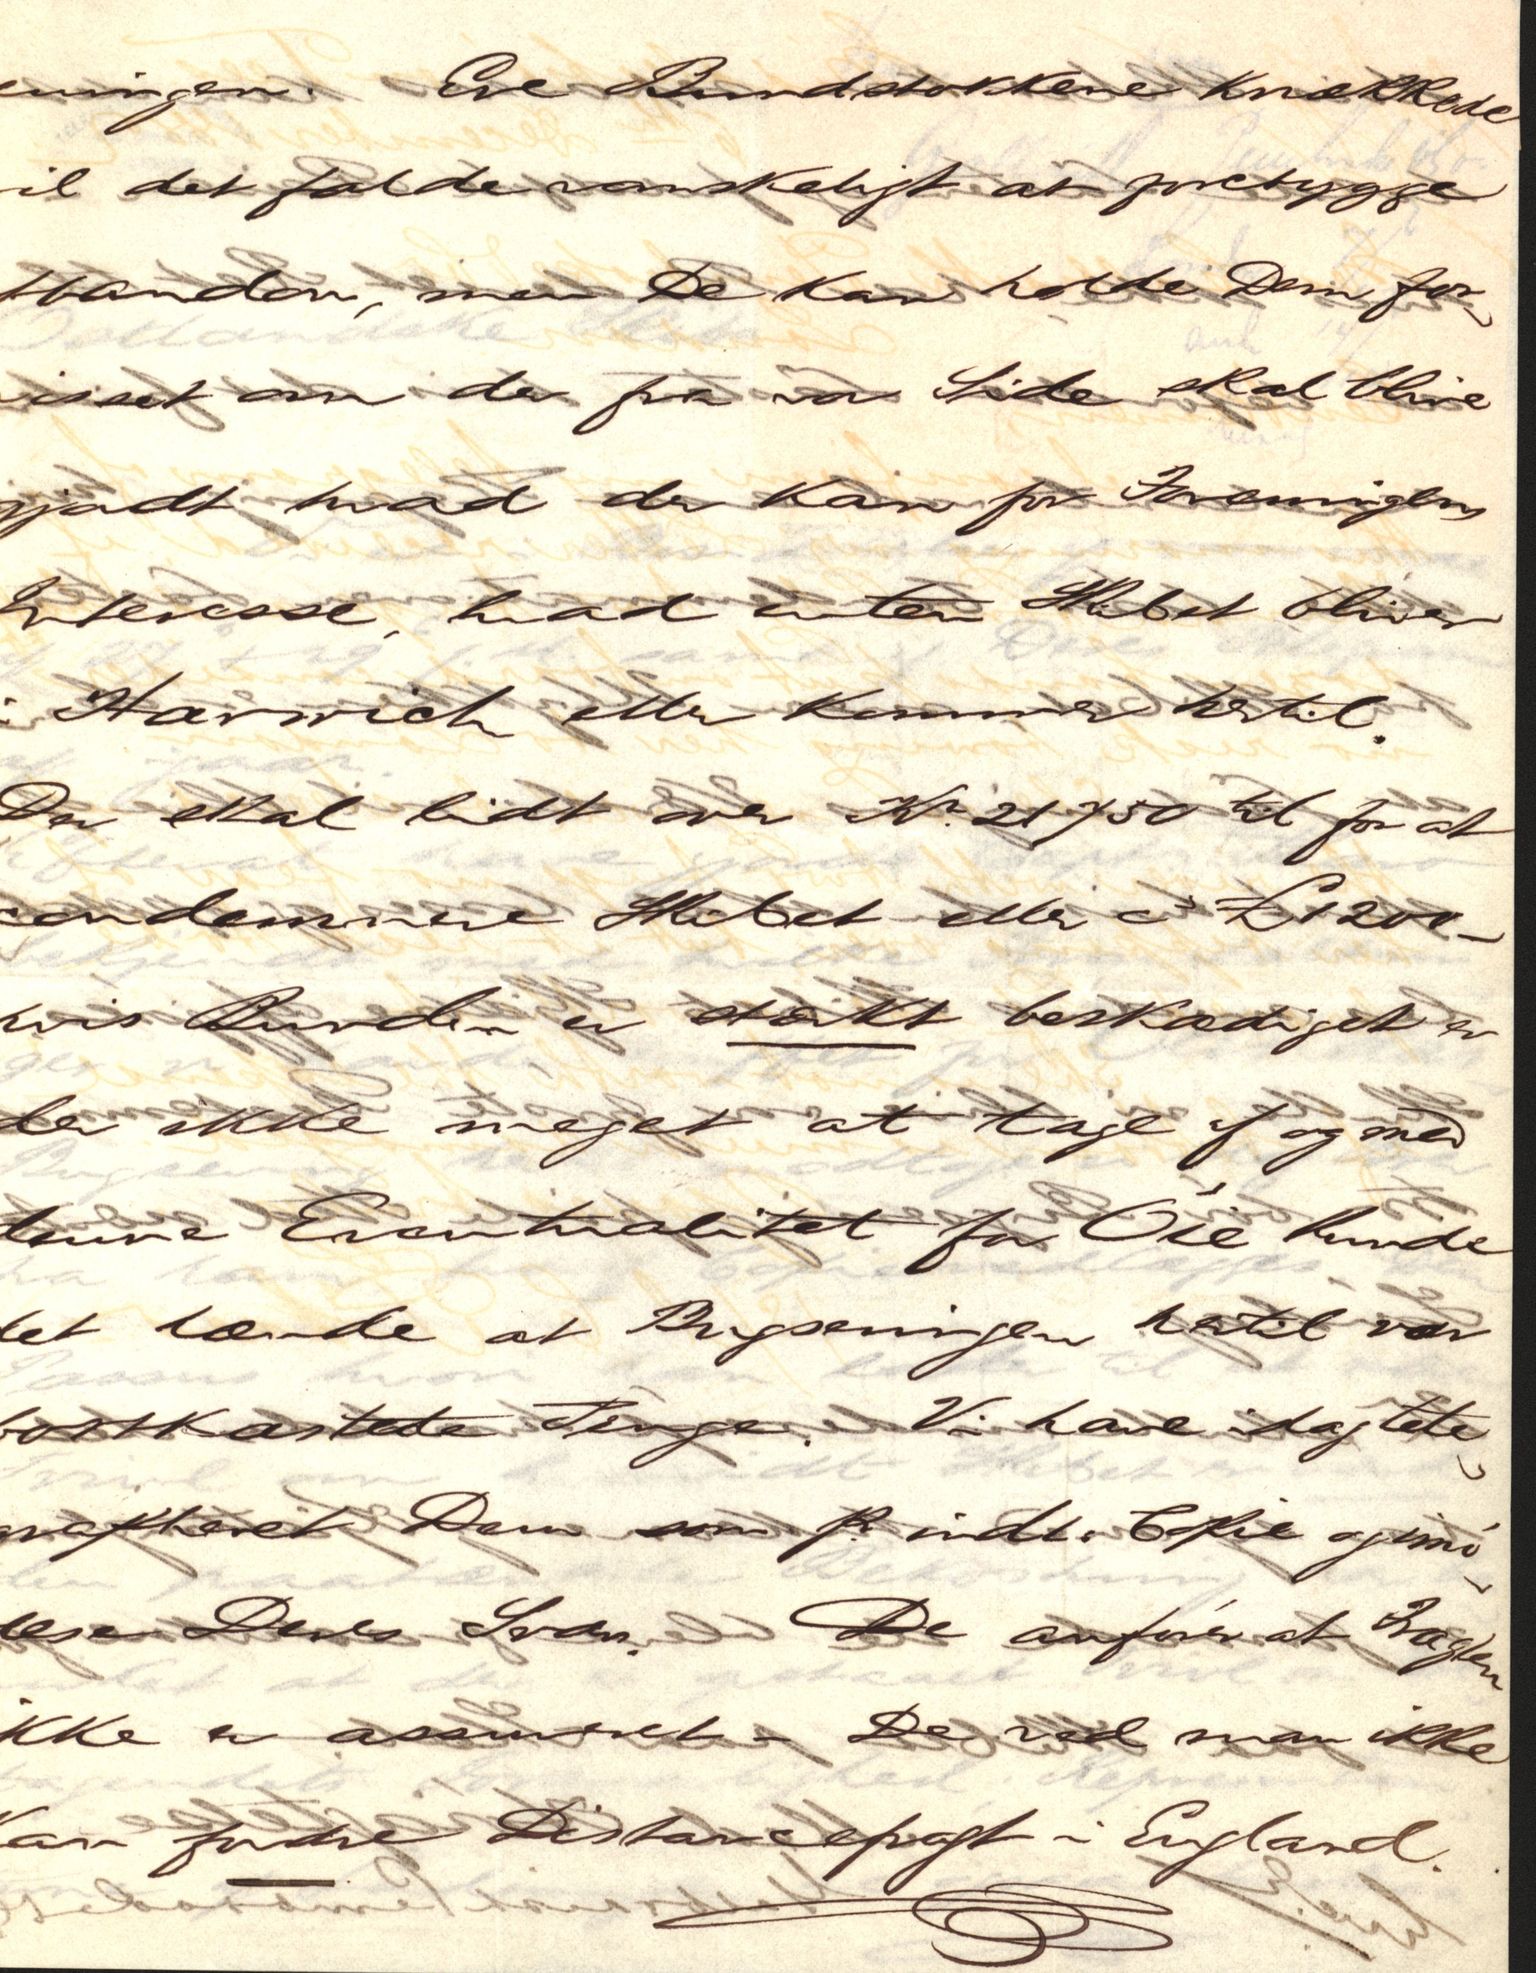 eningen. Ere Bundstokkene knækkede
vil det falde vanskeligt at forebygge
, men De kan holde Dem for-
visset om der fra vor Side skal blive
gjordt hvad der kan for Foreningens
Interesse, hvad enten Skibet bliver
i Harwich eller kommer hertil.
Der skal lidt over Kr. 21750 til for at
condemnere Skibet eller ca £1200-
hvis Bunden er stærkt beskadiget er
der ikke meget at tage af og med
denne Eventualitet for Öie kunde
det hænde at Bugseringen hertil var
bortkastede Penge. Vi have idag tele-
grapheret Dem som pr. indl. Copie og imö-
desee Deres Svar. De anförer at Fragten
ikke er assureret - De ved man ikke
kan fordre Distancefragt i England.